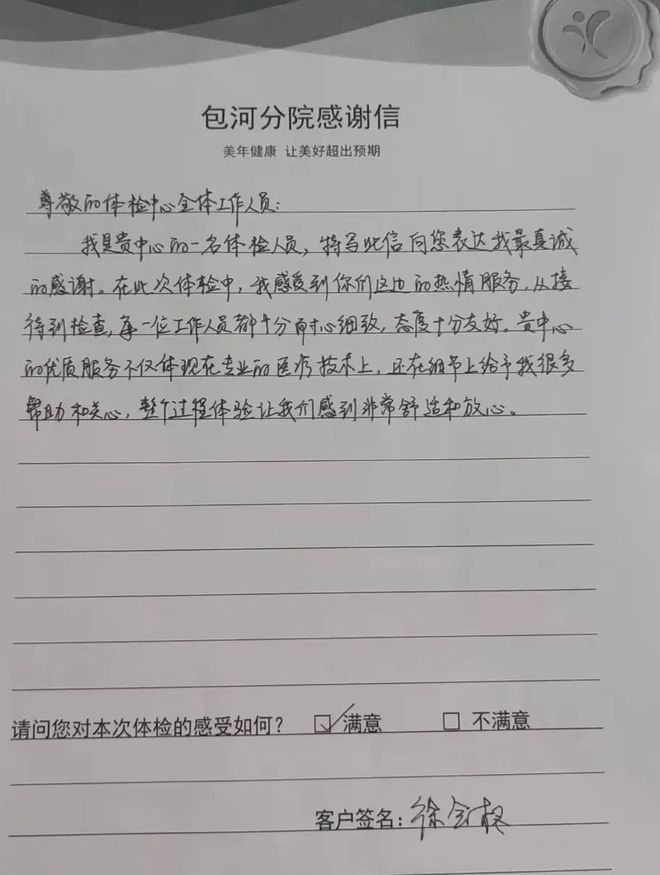 包河分院感谢信
美年健康 让美好超出预期
尊敬的体检中心全体工作人员:
我是贵中心的一名体检人员,特写此信向您表达我最真诚
的感谢。在此次体检中,我感受到你们这边的热情服务,从接
待到检查,每一位工作人员都十分耐心细致,态度十分友好。贵中心
的优质服务不仅体现在专业的医疗技术上,还在细节上给予我很多
帮助和关心,整个过程体验让我们感到非常舒适和放心。
请问您对本次体检的感受如何? ☑ 满意 □ 不满意
客户签名:徐